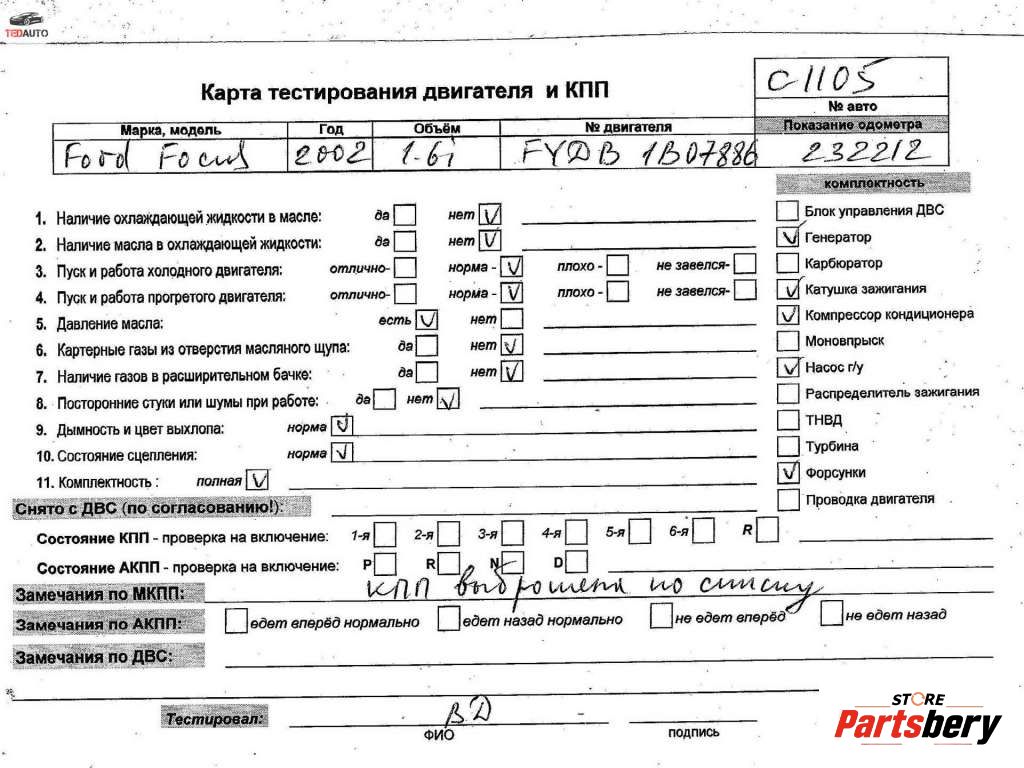 TEDAUTO
C-1105
Карта тестирования двигателя и КПП
№ авто
Марка, модель Год Объём № двигателя Показание одометра
Ford Focus 2002 1.6i FYDB 1B07886 232212
комплектность
1. Наличие охлаждающей жидкости в масле: да нет
2. Наличие масла в охлаждающей жидкости: да нет
3. Пуск и работа холодного двигателя: отлично- норма - плохо - не завелся-
4. Пуск и работа прогретого двигателя: отлично- норма - плохо - не завелся-
5. Давление масла: есть нет
6. Картерные газы из отверстия масляного щупа: да нет
7. Наличие газов в расширительном бачке: да нет
8. Посторонние стуки или шумы при работе: да нет
9. Дымность и цвет выхлопа: норма
10. Состояние сцепления: норма
11. Комплектность : полная
Блок управления ДВС
Генератор
Карбюратор
Катушка зажигания
Компрессор кондиционера
Моновпрыск
Насос г/у
Распределитель зажигания
ТНВД
Турбина
Форсунки
Проводка двигателя
Снято с ДВС (по согласованию!):
Состояние КПП - проверка на включение: 1-я 2-я 3-я 4-я 5-я 6-я R
Состояние АКПП - проверка на включение: P R N D
Замечания по МКПП: КПП выброшена по списку
Замечания по АКПП: едет вперёд нормально едет назад нормально не едет вперёд не едет назад
Замечания по ДВС:
Тестировал: ВД
ФИО подпись
STORE
Partsbery